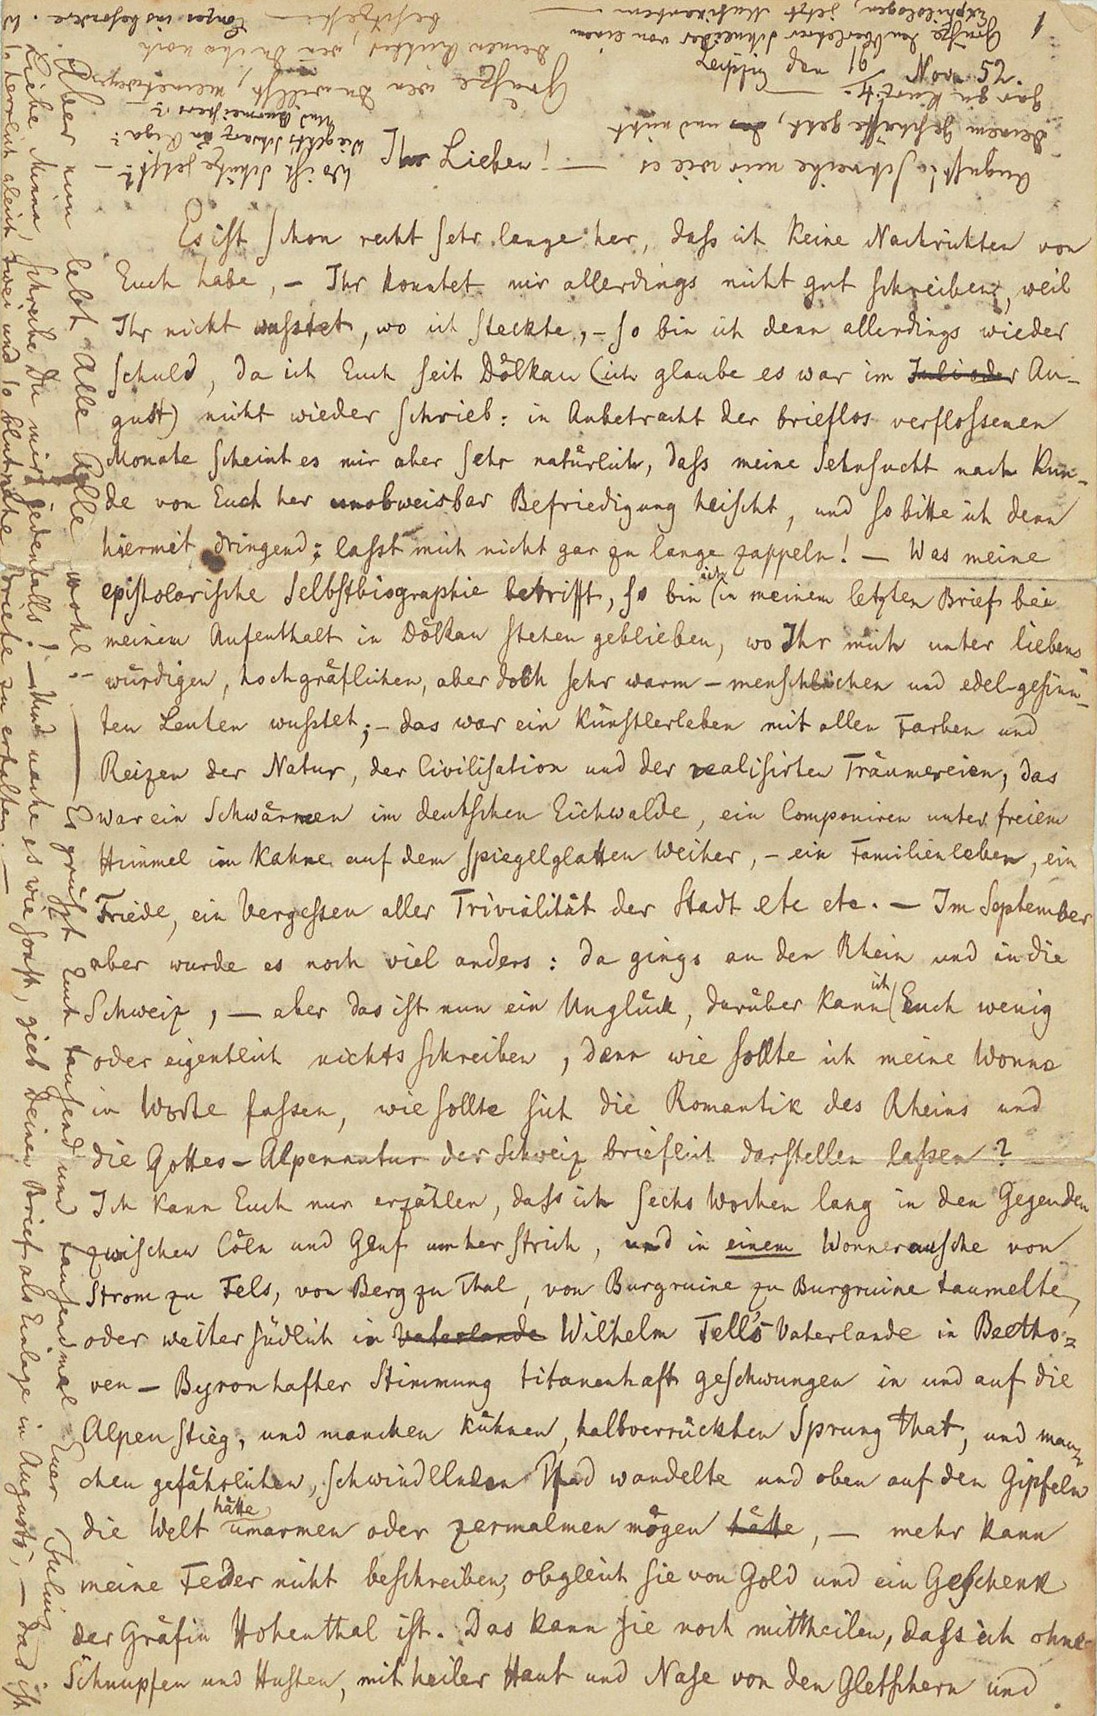 1
Leipzig den 16 Nov. 52.
Ihr Lieben!
Es ist schon recht sehr lange her, dass ich keine Nachrichten von
Euch habe, – Ihr konntet mir allerdings nicht gut schreiben, weil
Ihr nicht wusstet, wo ich steckte, – so bin ich denn allerdings wieder
schuld, da ich Euch seit Dölkau (ich glaube es war im Juli oder Au-
gust) nicht wieder schrieb: in Anbetracht der brieflos verflossenen
Monate scheint es mir aber sehr natürlich, dass meine Sehnsucht nach Kun-
de von Euch her unabweisbar Befriedigung heischt, und so bitte ich denn
hiermit dringend: lasst mich nicht gar zu lange zappeln! – Was meine
epistolarische Selbstbiographie betrifft, so bin ich in meinem letzten Brief bei
meinem Aufenthalt in Dölkau stehen geblieben, wo Ihr mich unter liebens-
würdigen, hochgräflichen, aber doch sehr warm-menschlichen und edel-gesinn-
ten Leuten wusstet; – das war ein Künstlerleben mit allen Farben und
Reizen der Natur, der Civilisation und der realisirten Träumereien, das
war ein Schwärmen im deutschen Eichwalde, ein Componiren unter freiem
Himmel im Kahne auf dem spiegelglatten Weiher, – ein Familienleben, ein
Friede, ein Vergessen aller Trivialität der Stadt etc etc. – Im September
aber wurde es noch viel anders: da gings an den Rhein und in die
Schweiz, – aber das ist nun ein Unglück, darüber kann ich Euch wenig
oder eigentlich nichts schreiben, denn wie sollte ich meine Wonne
in Worte fassen, wie sollte sich die Romantik des Rheins und
die Gottes-Alpennatur der Schweiz brieflich darstellen lassen?
Ich kann Euch nur erzählen, dass ich sechs Wochen lang in den Gegenden
zwischen Cöln und Genf umher strich, und in einem Wonnerausche von
Strom zu Fels, von Berg zu Thal, von Burgruine zu Burgruine taumelte,
oder weiter südlich in Vaterlande Wilhelm Tell's Vaterlande in Beetho-
ven-Byronhafter Stimmung titanenhaft geschwungen in und auf die
Alpen stieg, und manchen kühnen, halbverrückten Sprung that, und man-
chen gefährlichen, schwindelnden Pfad wandelte und oben auf den Gipfeln
die Welt hätte umarmen oder zermalmen mögen hätte, – mehr kann
meine Feder nicht beschreiben, obgleich sie von Gold und ein Geschenk
der Gräfin Hohenthal ist. Das kann sie noch mittheilen, dass ich ohne
Schnupfen und Husten, mit heiler Haut und Nase von den Gletschern und
Aber nun lebt Alle Alle wohl. – Es grüsst Euch tausend und tausendmal Euer Julius
Liebe Minna, schreibe Du mir jedenfalls! – Und mache es wie sonst, gieb Deinen Brief als Einlage in Augusts, – das ist
so herrlich gleich zwei und so Briefe zu erhalten. –
August! schreibe mir wie es
Deinem Geschäfte geht, und nicht
gar zu kurz
Grüsse den Oberlehrer Schneider von einem
Exphilologen, jetzt Musikanten
Grüsse wen Du willst, meinetwegen
Wo ist Schütze jetzt?
Wie gehts Schwarz in Riga?